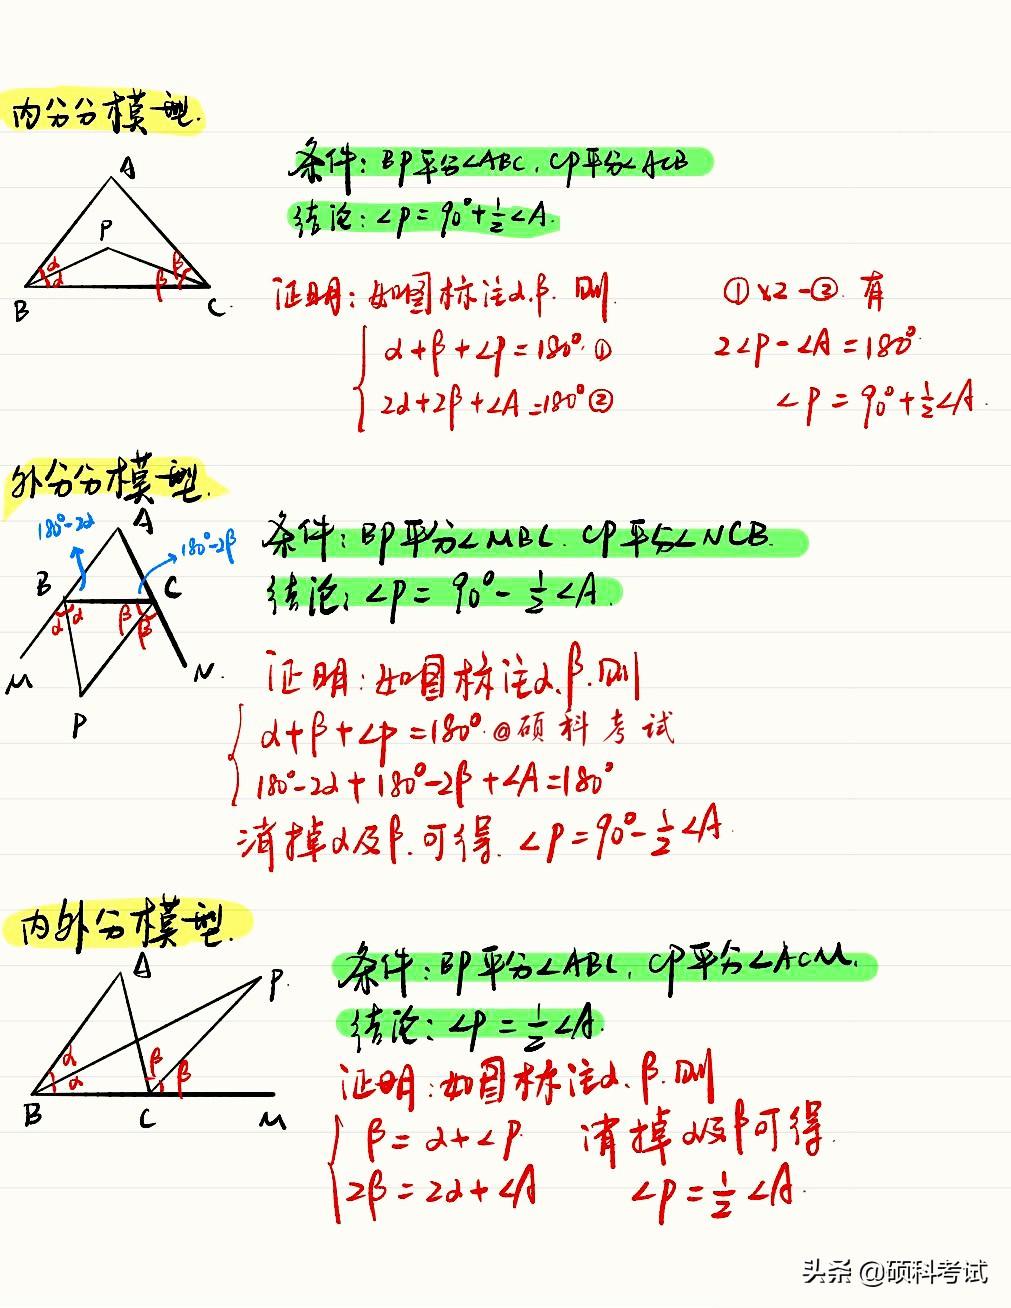 内分分模型.
条件: BP平分∠ABC, CP平分∠ACB
结论: ∠P=90°+½∠A.
A
P
α
α
β
β
B
C
证明: 如图标注α.β. 则
α+β+∠P=180° ①
2α+2β+∠A=180° ②
①×2-②. 有
2∠P-∠A=180°
∠P=90°+½∠A.
外分分模型.
180°-2α
A
180°-2β
B
C
α
α
β
β
M
N.
P
条件: BP平分∠MBC. CP平分∠NCB.
结论: ∠P=90°-½∠A.
证明: 如图标注α.β.则
α+β+∠P=180°.@硕科考试
180°-2α+180°-2β+∠A=180°
消掉α及β.可得. ∠P=90°-½∠A.
内外分模型.
A
P.
α
α
β
β
B
C
M
条件: BP平分∠ABC, CP平分∠ACM.
结论: ∠P=½∠A.
证明: 如图标注α.β.则
β=α+∠P.
2β=2α+∠A
消掉α及β可得.
∠P=½∠A.
头条 @硕科考试